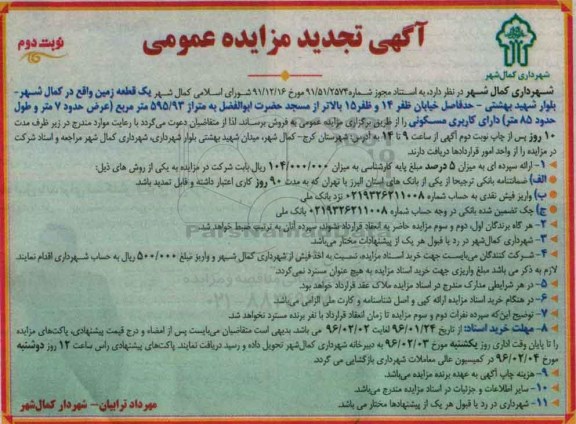 آگهی تجدید مزایده عمومی
نوبت دوم
شهرداری کمال‌شهر
شهرداری کمال شهر در نظر دارد، به استناد مجوز شماره ۹۱/۵۱/۲۵۷۴ مورخ ۹۱/۱۲/۱۶ شورای اسلامی کمال شهر یک قطعه زمین واقع در کمال شهر -
بلوار شهید بهشتی - حدفاصل خیابان ظفر ۱۴ و ظفر ۱۵ بالاتر از مسجد حضرت ابوالفضل به متراژ ۵۹۵/۹۳ متر مربع (عرض حدود ۷ متر و طول
حدود ۸۵ متر) دارای کاربری مسکونی را از طریق برگزاری مزایده عمومی به فروش برساند. لذا از متقاضیان دعوت می‌گردد با رعایت موارد مندرج در زیر ظرف مدت
۱۰ روز پس از چاپ نوبت دوم آگهی از ساعت ۹ تا ۱۴ به آدرس شهرستان کرج- کمال شهر، میدان شهید بهشتی بلوار شهرداری، شهرداری کمال شهر مراجعه و اسناد شرکت
در مزایده را از واحد امور قراردادها دریافت دارند.
۱- ارائه سپرده ای به میزان ۵ درصد مبلغ پایه کارشناسی به میزان ۱۰۴/۰۰۰/۰۰۰ ریال بابت شرکت در مزایده به یکی از روش های ذیل:
الف) ضمانتنامه بانکی ترجیحا از یکی از بانک های استان البرز یا تهران که به مدت ۹۰ روز کاری اعتبار داشته و قابل تمدید باشد
ب) واریز فیش نقدی به حساب شماره ۰۲۱۹۳۲۶۲۱۱۰۰۸ نزد بانک ملی
ج) چک تضمین شده بانکی در وجه حساب شماره ۰۲۱۹۳۲۶۲۱۱۰۰۸ بانک ملی
۲- هر گاه برندگان اول، دوم و سوم مزایده حاضر به انعقاد قرارداد نشوند، سپرده آنان به ترتیب ضبط خواهد شد.
۳- شهرداری کمال‌شهر در رد یا قبول هر یک از پیشنهادات مختار می‌باشد.
۴- شرکت کنندگان می‌بایست جهت خرید اسناد مزایده، نسبت به اخذ فیش از شهرداری کمال شهر و واریز مبلغ ۵۰۰/۰۰۰ ریال به حساب شهرداری اقدام نمایند.
لازم به ذکر می باشد مبلغ واریزی جهت خرید اسناد مزایده به هیچ عنوان مسترد نمی‌گردد.
۵- در هر شرایطی مدارک مندرج در اسناد مزایده ملاک عقد قرارداد خواهد بود.
۶- در هنگام خرید اسناد مزایده ارائه کپی و اصل شناسنامه و کارت ملی الزامی می‌باشد.
۷- توضیح این‌که سپرده نفرات دوم و سوم مزایده تا زمان انعقاد قرارداد با نفر برنده مسترد نخواهد شد.
۸- مهلت خرید اسناد: از تاریخ ۹۶/۰۱/۲۴ لغایت ۹۶/۰۲/۰۲ می باشد. بدیهی است متقاضیان می‌بایست پس از امضاء و درج قیمت پیشنهادی، پاکت‌های مزایده
را تا پایان وقت اداری روز یکشنبه مورخ ۹۶/۰۲/۰۳ به دبیرخانه شهرداری کمال‌شهر تحویل داده و رسید دریافت نمایند. پاکت‌های پیشنهادی راس ساعت ۱۲ روز دوشنبه
مورخ ۹۶/۰۲/۰۴ در کمیسیون عالی معاملات شهرداری بازگشایی می گردد.
۹- هزینه چاپ آگهی به عهده برنده مزایده می‌باشد.
۱۰- سایر اطلاعات و جزئیات در اسناد مزایده مندرج می‌باشد.
۱۱- شهرداری در رد یا قبول هر یک از پیشنهادها مختار می باشد.
مهرداد ترابیان- شهردار کمال‌شهر